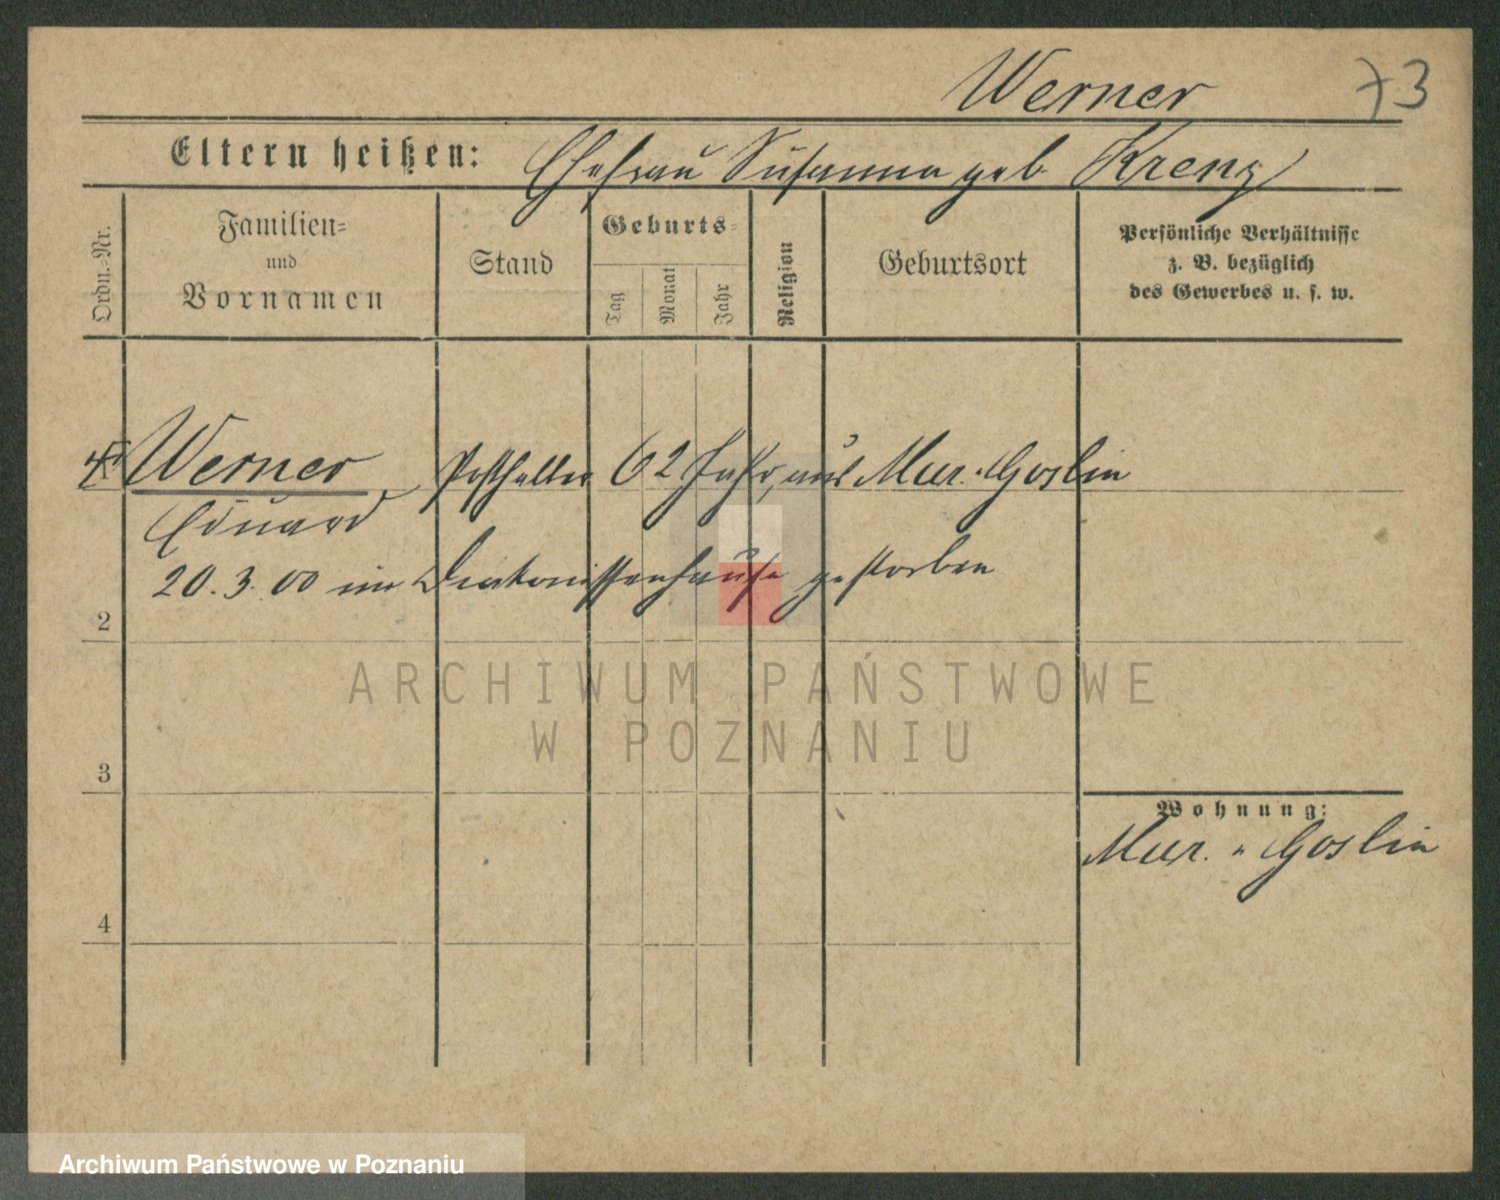 Werner 73
Eltern heißen: Ehefrau Susanna geb. Krenz
Ordn.-Nr.
Familien-
und
Vornamen
Stand
Geburts-
Tag
Monat
Jahr
Religion
Geburtsort
Persönliche Verhältnisse
z. B. bezüglich
des Gewerbes u. s. w.
Werner Posthalter 62 Jahr, aus Mur. Goslin
Eduard
20.3.00 im Diakonissenhause gestorben
2
ARCHIWUM PAŃSTWOWE
W POZNANIU
3
Wohnung:
Mur. - Goslin
4
Archiwum Państwowe w Poznaniu